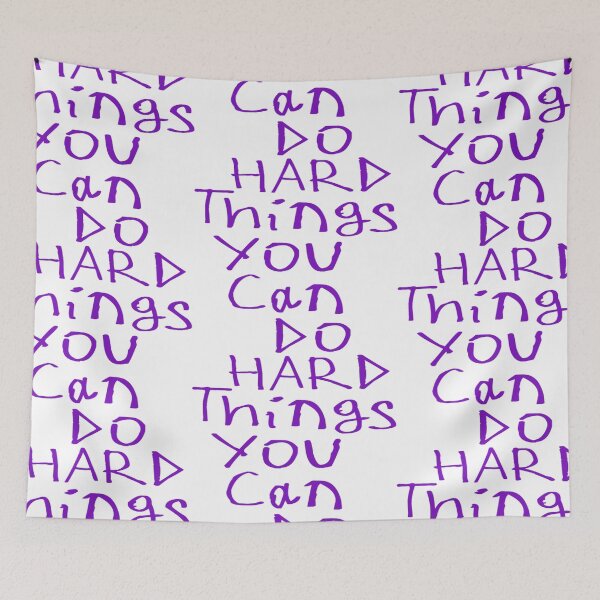 HARD
hings
YOU
Can
DO
HARD
hings
YOU
Can
DO
HARD
hings
Can
DO
HARD
Things
YOU
Can
DO
HARD
Things
YOU
Can
HARD
Thing
YOU
Can
DO
HARD
Thing
YOU
Can
DO
HARD
Thing